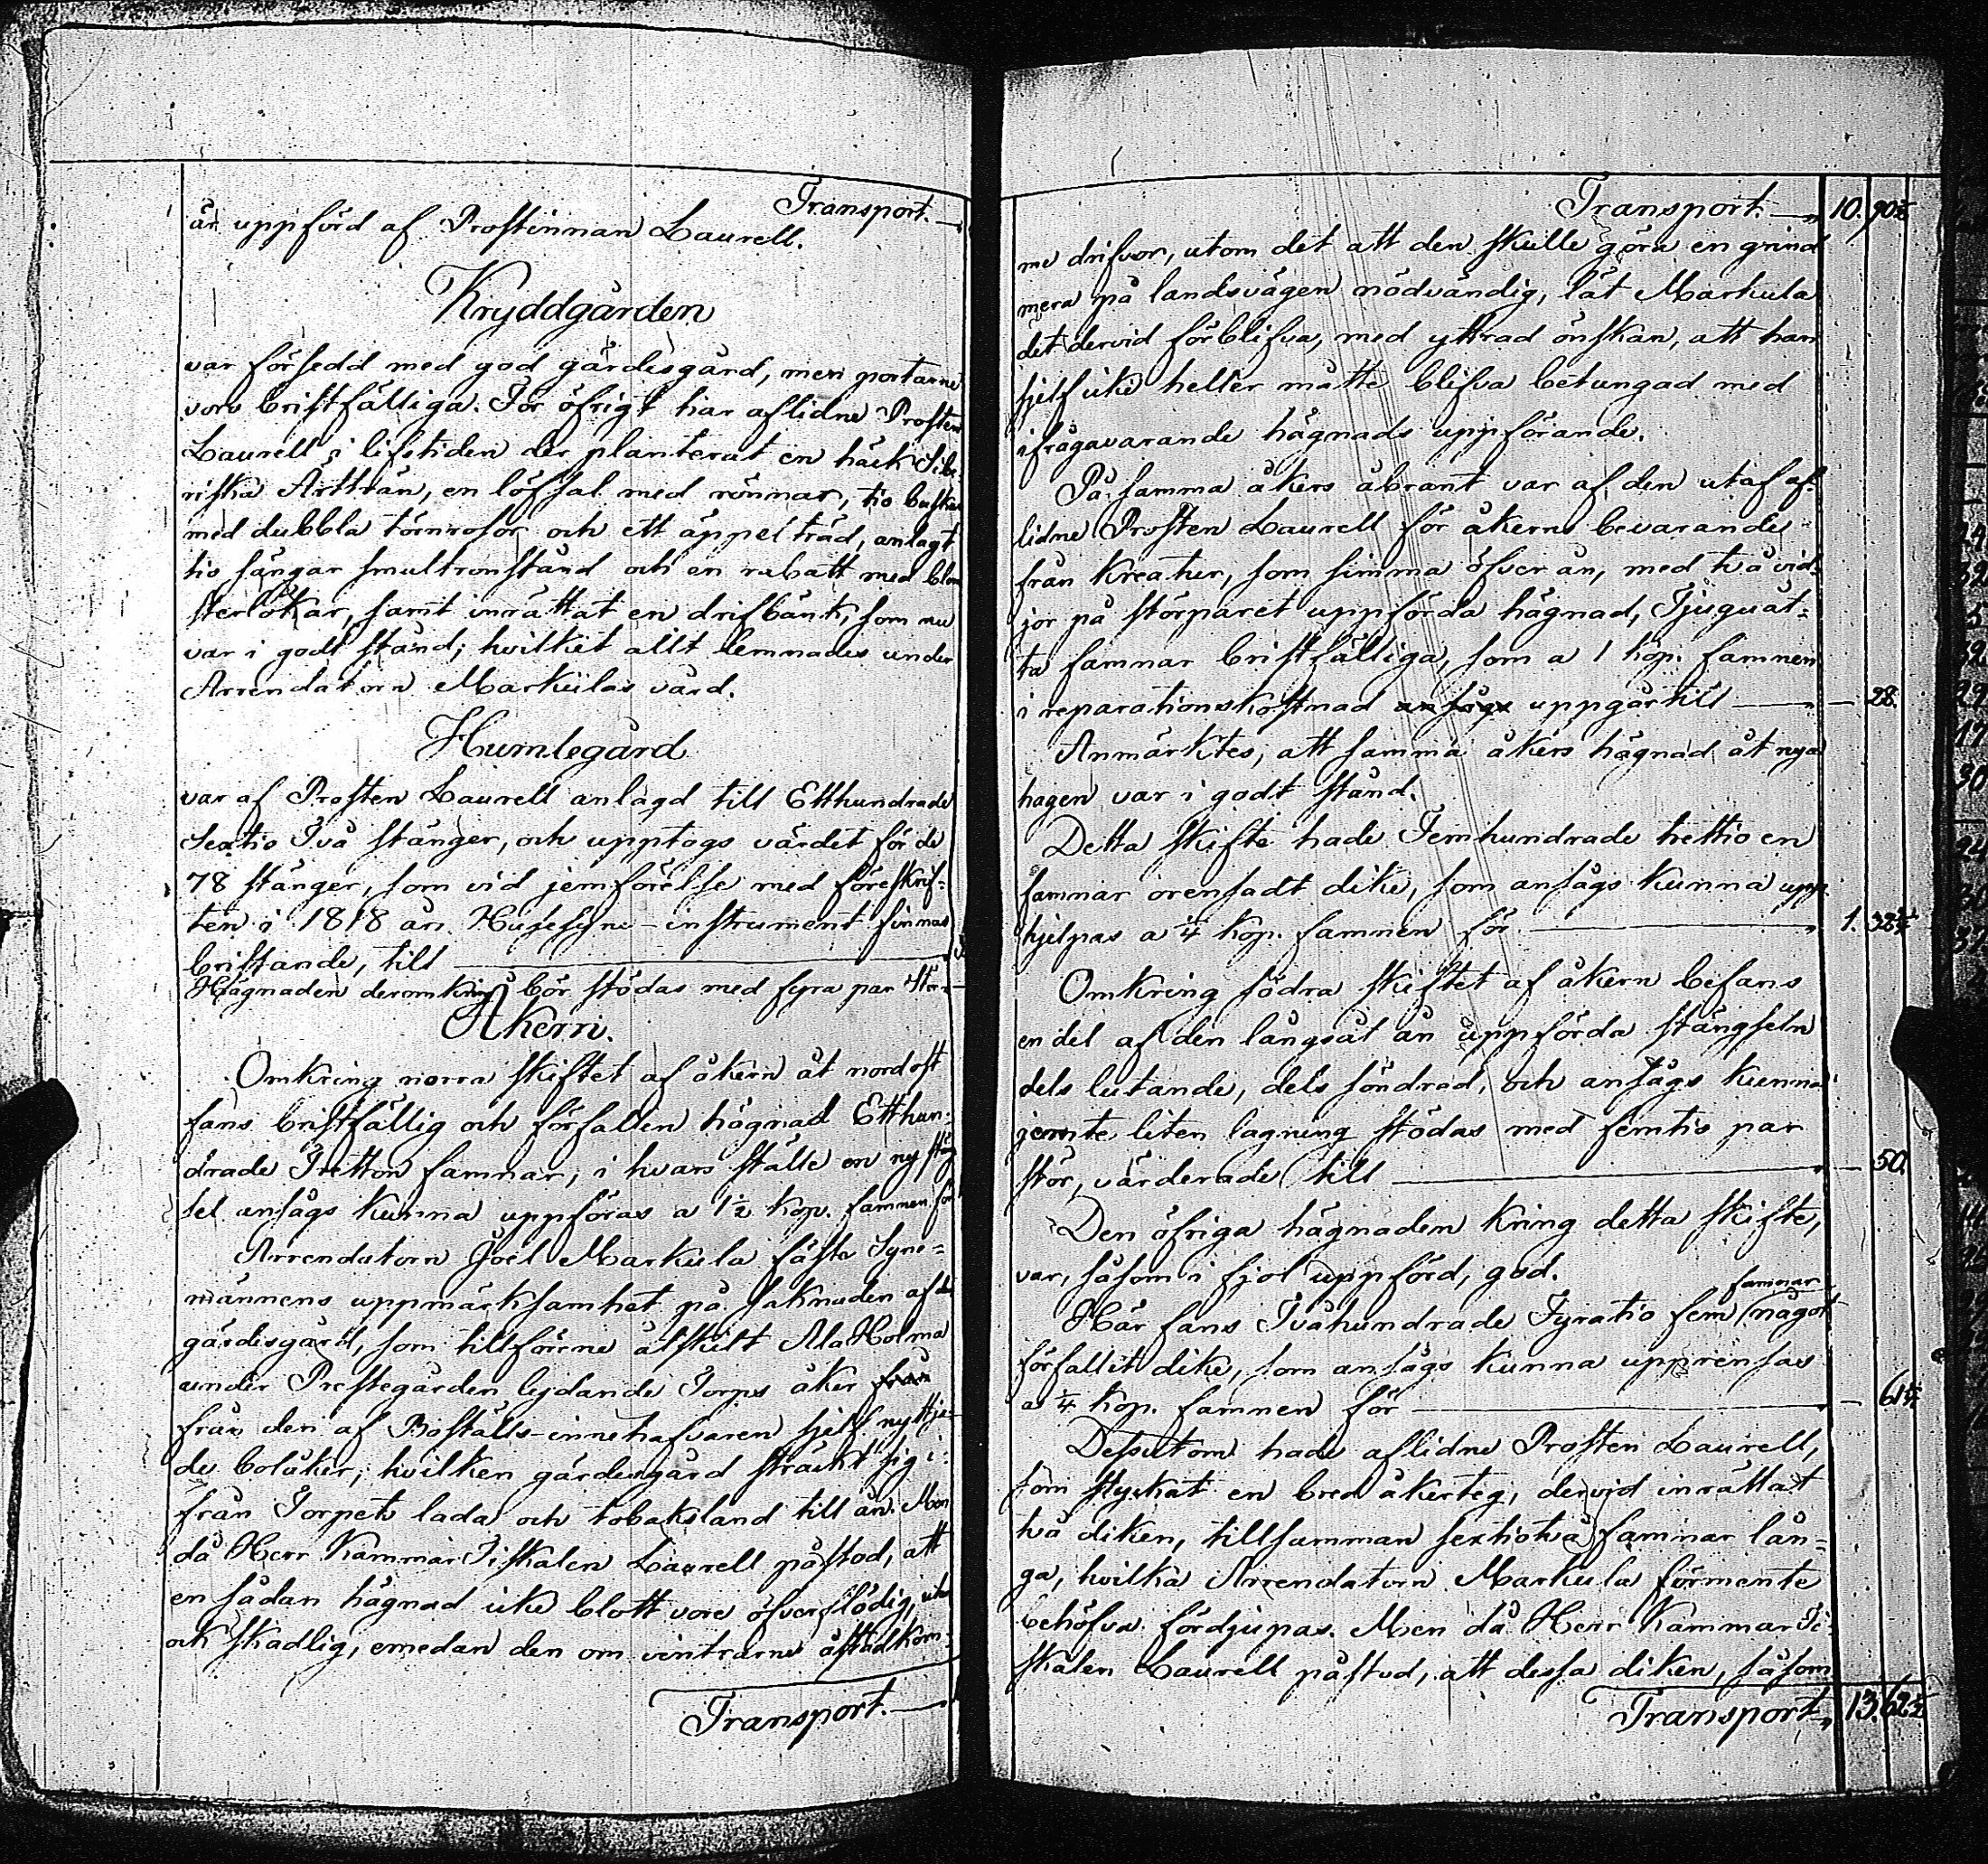 Transport.
är uppförd af Prostinnan Laurell.
Kryddgården
var försedd med god gärdesgård, men portarne
voro bristfälliga. För öfrigt har aflidne Prosten
Laurell i lifstiden der planterat en häck Sibe-
riska Ärtträn, en löfsal med rönnar, tio buskar
med dubbla törnrosor och ett äppelträd, anlagt
tio sängar smultronstånd och en rabatt med blom
sterlökar, samt inrättat en drifbänk, som nu
var i godt stånd; hvilket allt lemnades under
Arrendatorn Markulas vård.
Humlegård
var af Prosten Laurell anlagd till Etthundrade
Sextio Två stänger, och upptogs värdet för de
78 stänger, som vid jemförelse med föreskrif-
ten i 1818 års Husesyns-instrument finnas
bristande, till
Hägnaden deromkring bör stödas med fyra par Stör
Åkern.
Omkring norra skiftet af åkern åt nordost
fans bristfällig och förfallen hägnad Etthun-
drade Tretton famnar, i hvars ställe en ny stäng
sel ansågs kunna uppföras a 1½ kop. famnen för
Arrendatorn Joel Markula fäste Syne-
männens uppmärksamhet på saknaden af den
gärdesgård, som tillförene åtskilt Ala Holma
under Prestegården lydande Torps åker från
från den af Boställs-innehafvaren sjelf nyttja-
de bolåker, hvilken gärdesgård sträckt sig i-
från Torpets lada och tobaksland till ån. Men
då Herr Kammar Fiskalen Laurell påstod, att
en sådan hägnad icke blott vore öfverflödig, utan
ock skadlig, emedan den om vintrarne åstadkom-
Transport.
Transport. 10. 90½
me drifvor, utom det att den skulle göra en grind
mera på landsvägen nödvändig, lät Markula
det dervid förblifva, med yttrad önskan, att han
sjelf icke heller måtte blifva betungad med
ifrågavarande hägnads uppförande.
På samma åkers åbrant var af den utaf af-
lidne Prosten Laurell för åkerns bevarande
från kreatur, som simma öfver ån, med två vid-
jor på störparet uppförda hägnad, Tjuguåt-
ta famnar bristfälliga, som a 1 kop. famnen
i reparationskostnad ansågs uppgår till — 28.
Anmärktes, att samma åkers hägnad åt nya
hagen var i godt stånd.
Detta skifte hade Femhundrade trettio en
famnar orensadt dike, som ansågs kunna upp
hjelpas a ¼ kop. famnen för 1. 32¾
Omkring södra skiftet af åkern befans
en del af den långsåt ån uppförda stängseln
dels lutande, dels söndrad, och ansågs kunna
jemte liten lagning stödas med femtio par
stör, värderade till — 50.
Den öfriga hägnaden kring detta skifte,
var, såsom i fjol uppförd, god.
famnar
Här fans Tvåhundrade Fyratio fem något
förfallit dike, som ansågs kunna upprensas
a ¼ kop. famnen för — 61¼
Dessutom hade aflidne Prosten Laurell,
som styckat en bred åkerteg, dervid inrättat
två diken, tillsamman sextiotvå famnar lån-
ga, hvilka Arrendatorn Markula förmente
behöfva fördjupas. Men då Herr Kammar Fi-
skalen Laurell påstod, att dessa diken, såsom
Transport 13. 62½